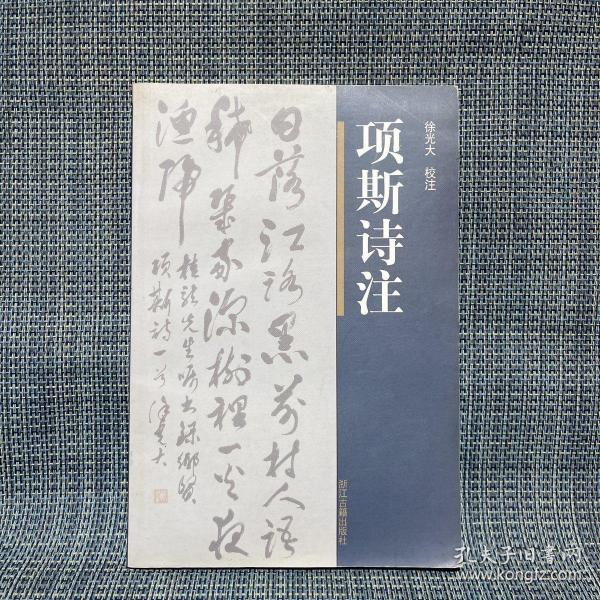 徐光大 校注
项斯诗注
浙江古籍出版社
日落江路黑前村人语
稀几家深树里一火夜
渔归
桂龙先生嘱书录乡贤
项斯诗一首 徐光大
孔夫子旧书网
www.kongfz.com